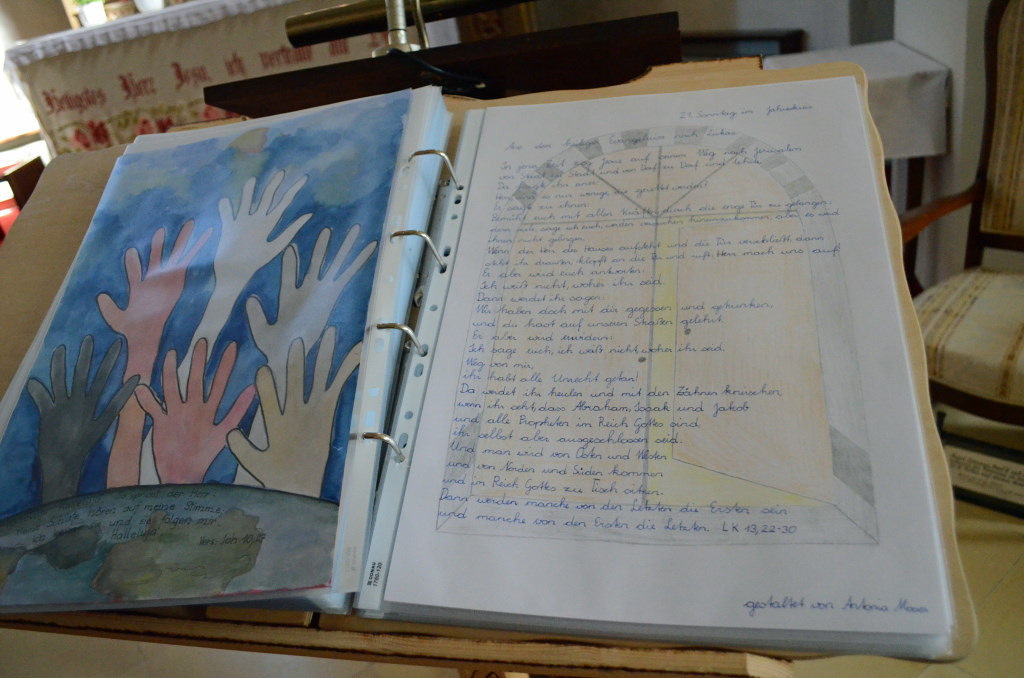 Heiligstes Herz Jesu, ich vertraue auf
meine Stimme,
und sie folgen mir
Halleluja
Vers: Joh 10,
21. Sonntag im Jahreskreis
Aus dem heiligen Evangelium nach Lukas
In jener Zeit zog Jesus auf seinem Weg nach Jerusalem
von Stadt zu Stadt und von Dorf zu Dorf und lehrte.
Da fragte ihn einer:
Herr, sind es nur wenige, die gerettet werden?
Er sagte zu ihnen:
Bemüht euch mit allen Kräften durch die enge Tür zu gelangen;
denn viele, sage ich euch, werden versuchen hineinzukommen, aber es wird
ihnen nicht gelingen.
Wenn der Herr des Hauses aufsteht und die Tür verschließt, dann
steht ihr draußen, klopft an die Tür und ruft: Herr mach uns auf
Er aber wird euch antworten:
Ich weiß nicht, woher ihr seid
Dann werdet ihr sagen:
Wir haben doch mit dir gegessen und getrunken,
und du hast auf unseren Straßen gelehrt.
Er aber wird
Ich sage euch, ich weiß nicht, woher ihr seid.
Weg von mir,
ihr habt alle Unrecht getan!
Da werdet ihr heulen und mit den Zähnen knirschen,
wenn ihr seht, dass Abraham, Isaak und Jakob
und alle Propheten im Reich Gottes sind,
ihr selbst aber ausgeschlossen seid.
Und man wird von Osten und Westen
und von Norden und Süden kommen
und im Reich Gottes zu Tisch sitzen.
Dann werden manche von den Letzten die Ersten sein
und manche von den Ersten die Letzten. Lk 13,22-30
gestaltet von Antonia